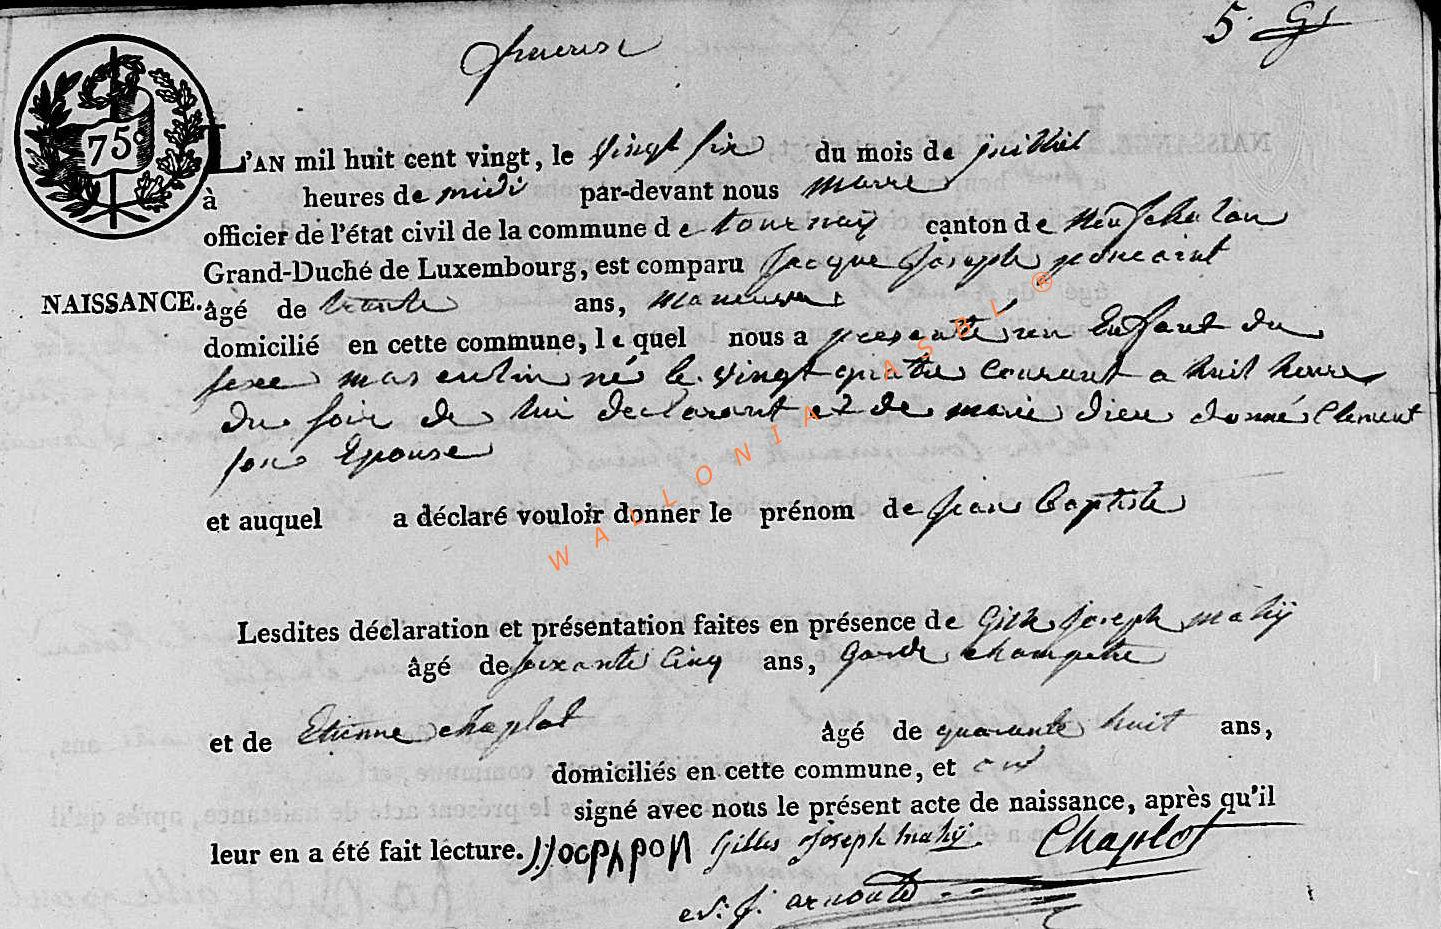 5.
75c
L'AN mil huit cent vingt, le vingt six du mois de juillet
à heures de midi par-devant nous
officier de l'état civil de la commune de tournay canton de Neufchatau
Grand-Duché de Luxembourg, est comparu Jacque Joseph poncin
NAISSANCE. âgé de trente ans, maneuvre
domicilié en cette commune, lequel nous a presenté un Enfant du
sexe masculin né le vingt quatre courant a huit heure
du soir de lui declarant et de marie dieu donné Clement
son Epouse
et auquel a déclaré vouloir donner le prénom de jean baptiste
Lesdites déclaration et présentation faites en présence de Gille joseph mahÿ
âgé de soixante cinq ans, garde champetre
et de Etienne chaplot âgé de quarante huit ans,
domiciliés en cette commune, et ont
signé avec nous le présent acte de naissance, après qu'il
leur en a été fait lecture. Gilles Joseph mahÿ Chaplot
arnould
WALLONIA ASBL ®